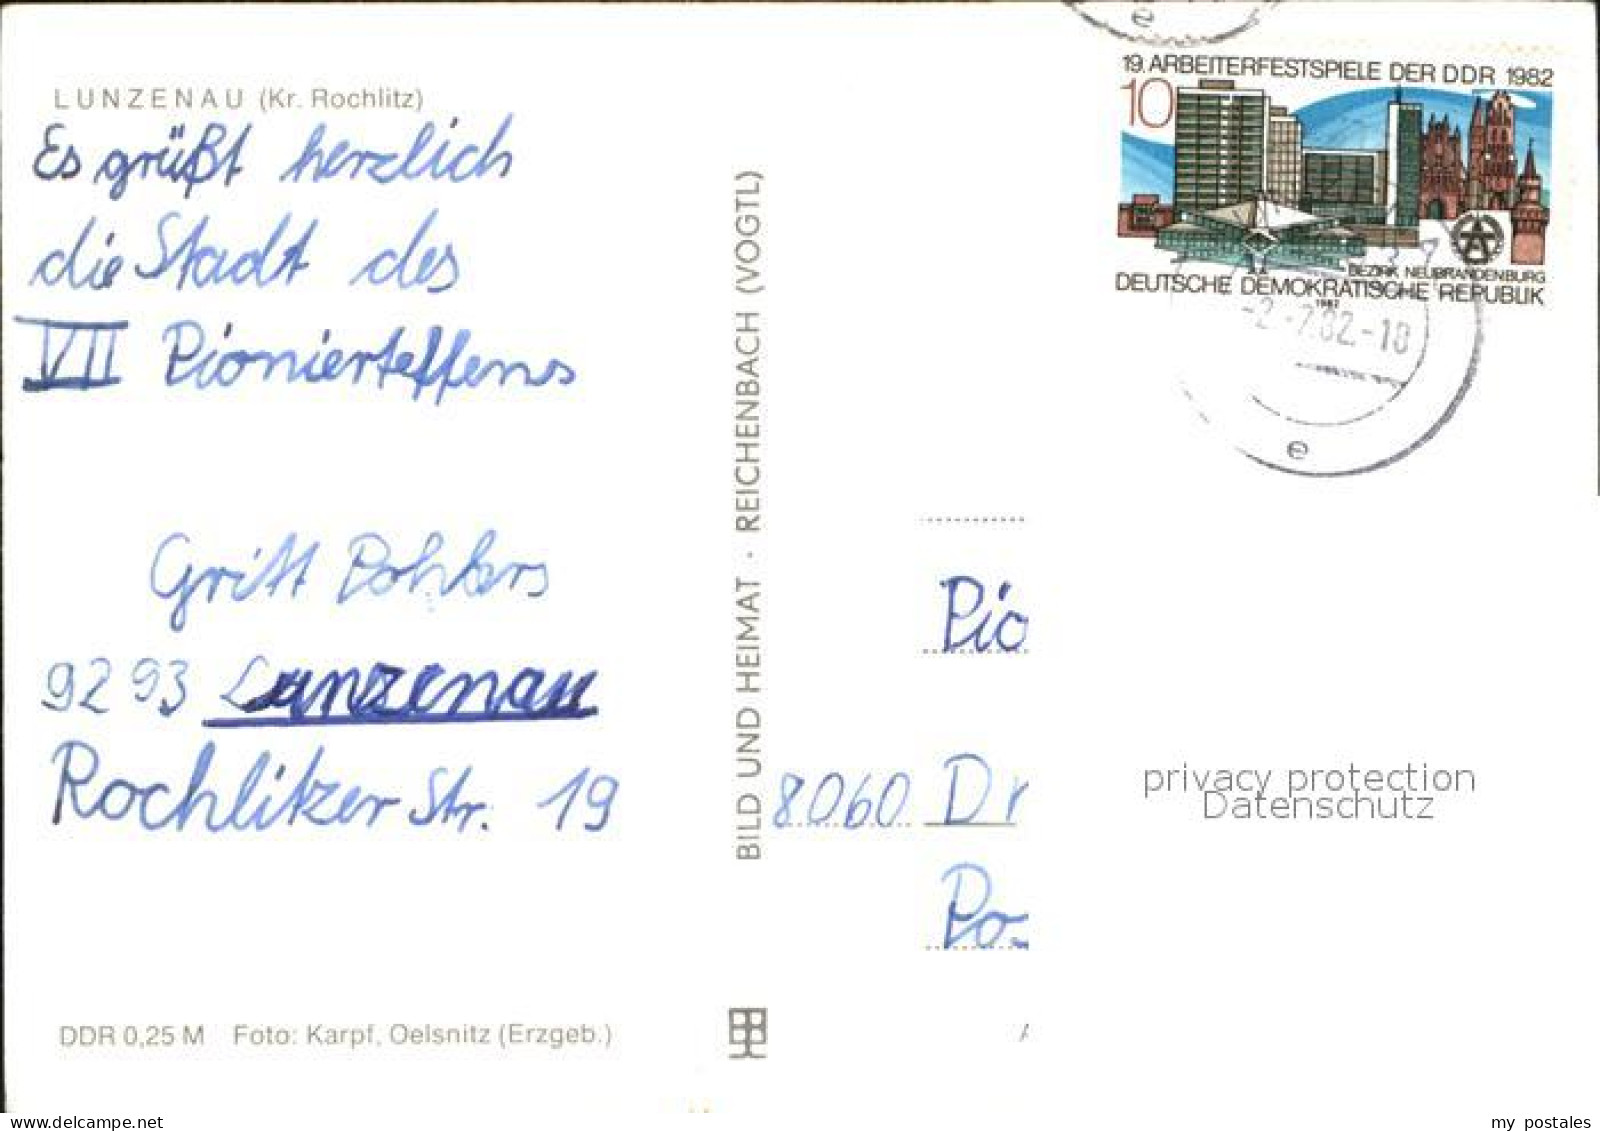 LUNZENAU (Kr. Rochlitz)
Es grüßt herzlich
die Stadt des
VII Pionierteffens
Gritt Pohlers
9293 Lunzenau
Rochlitzer Str. 19
DDR 0,25 M Foto: Karpf, Oelsnitz (Erzgeb.)
BILD UND HEIMAT · REICHENBACH (VOGTL)
19. ARBEITERFESTSPIELE DER DDR 1982
10
BEZIRK NEUBRANDENBURG
DEUTSCHE DEMOKRATISCHE REPUBLIK
1982
-2.-7.82.-18
e
e
Pio
8060 Dr
Po
privacy protection
Datenschutz
www.delcampe.net
my postales